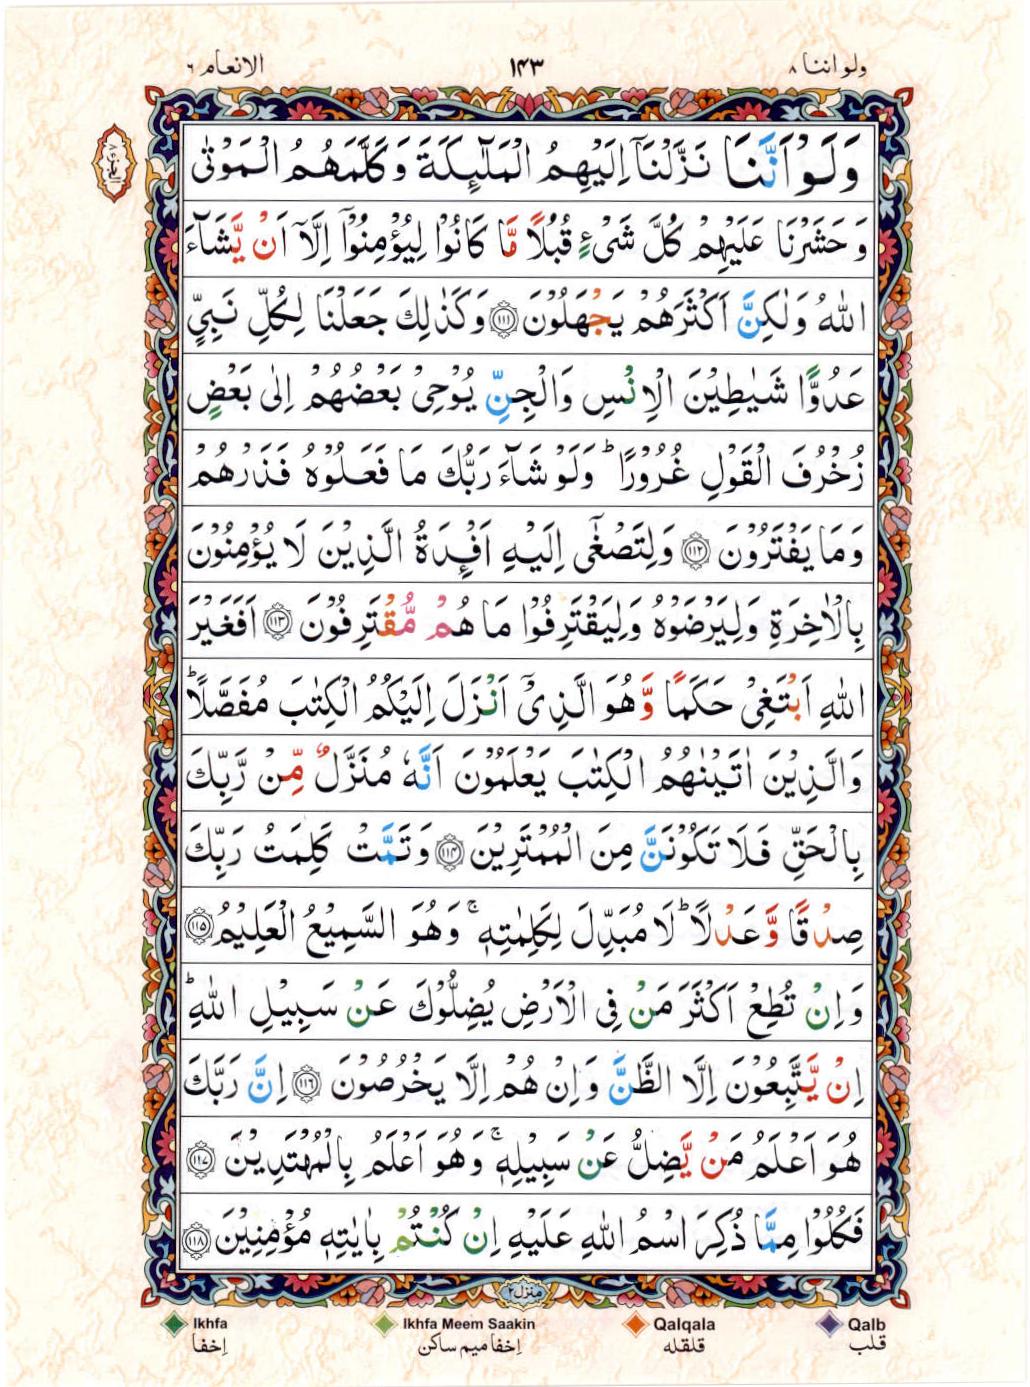 ولو اننا ۸
۱۴۳
الانعام ۶
وَلَوْ اَنَّنَا نَزَّلْنَاۤ اِلَيْهِمُ الْمَلٰٓئِكَةَ وَكَلَّمَهُمُ الْمَوْتٰى
وَحَشَرْنَا عَلَيْهِمْ كُلَّ شَىْءٍ قُبُلًا مَّا كَانُوْا لِيُؤْمِنُوْۤا اِلَّاۤ اَنْ يَّشَآءَ
اللّٰهُ وَلٰكِنَّ اَكْثَرَهُمْ يَجْهَلُوْنَ ﴿۱۱۱﴾ وَكَذٰلِكَ جَعَلْنَا لِكُلِّ نَبِىٍّ
عَدُوًّا شَيٰطِيْنَ الْاِنْسِ وَالْجِنِّ يُوْحِىْ بَعْضُهُمْ اِلٰى بَعْضٍ
زُخْرُفَ الْقَوْلِ غُرُوْرًا ؕ وَلَوْ شَآءَ رَبُّكَ مَا فَعَلُوْهُ فَذَرْهُمْ
وَمَا يَفْتَرُوْنَ ﴿۱۱۲﴾ وَلِتَصْغٰۤى اِلَيْهِ اَفْـِٕدَةُ الَّذِيْنَ لَا يُؤْمِنُوْنَ
بِالْاٰخِرَةِ وَلِيَرْضَوْهُ وَلِيَقْتَرِفُوْا مَا هُمْ مُّقْتَرِفُوْنَ ﴿۱۱۳﴾ اَفَغَيْرَ
اللّٰهِ اَبْتَغِىْ حَكَمًا وَّهُوَ الَّذِىْۤ اَنْزَلَ اِلَيْكُمُ الْكِتٰبَ مُفَصَّلًا ؕ
وَالَّذِيْنَ اٰتَيْنٰهُمُ الْكِتٰبَ يَعْلَمُوْنَ اَنَّهٗ مُنَزَّلٌ مِّنْ رَّبِّكَ
بِالْحَقِّ فَلَا تَكُوْنَنَّ مِنَ الْمُمْتَرِيْنَ ﴿۱۱۴﴾ وَتَمَّتْ كَلِمَتُ رَبِّكَ
صِدْقًا وَّعَدْلًا ؕ لَا مُبَدِّلَ لِكَلِمٰتِهٖ ۚ وَهُوَ السَّمِيْعُ الْعَلِيْمُ ﴿۱۱۵﴾
وَاِنْ تُطِعْ اَكْثَرَ مَنْ فِى الْاَرْضِ يُضِلُّوْكَ عَنْ سَبِيْلِ اللّٰهِ ؕ
اِنْ يَّتَّبِعُوْنَ اِلَّا الظَّنَّ وَاِنْ هُمْ اِلَّا يَخْرُصُوْنَ ﴿۱۱۶﴾ اِنَّ رَبَّكَ
هُوَ اَعْلَمُ مَنْ يَّضِلُّ عَنْ سَبِيْلِهٖ ۚ وَهُوَ اَعْلَمُ بِالْمُهْتَدِيْنَ ﴿۱۱۷﴾
فَكُلُوْا مِمَّا ذُكِرَ اسْمُ اللّٰهِ عَلَيْهِ اِنْ كُنْتُمْ بِاٰيٰتِهٖ مُؤْمِنِيْنَ ﴿۱۱۸﴾
منزل ۲
Ikhfa Ikhfa Meem Saakin Qalqala Qalb
اِخفا اِخفا میم ساکن قلقلہ قلب